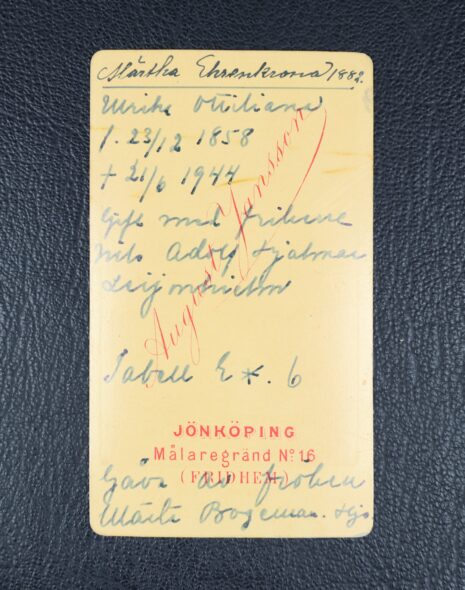 Märtha Ehrenkrona 1882.
Ulrika Ottiliana
f. 23/12 1858
+ 21/6 1944
Gift med friherre
Nils Adolf Hjalmar
Leijonhielm
August Jansson
Tabell E *. 6
JÖNKÖPING
Målaregränd No 16
(FRIDHEM)
Gåva av fröken
Märta Bogeman. Hjo